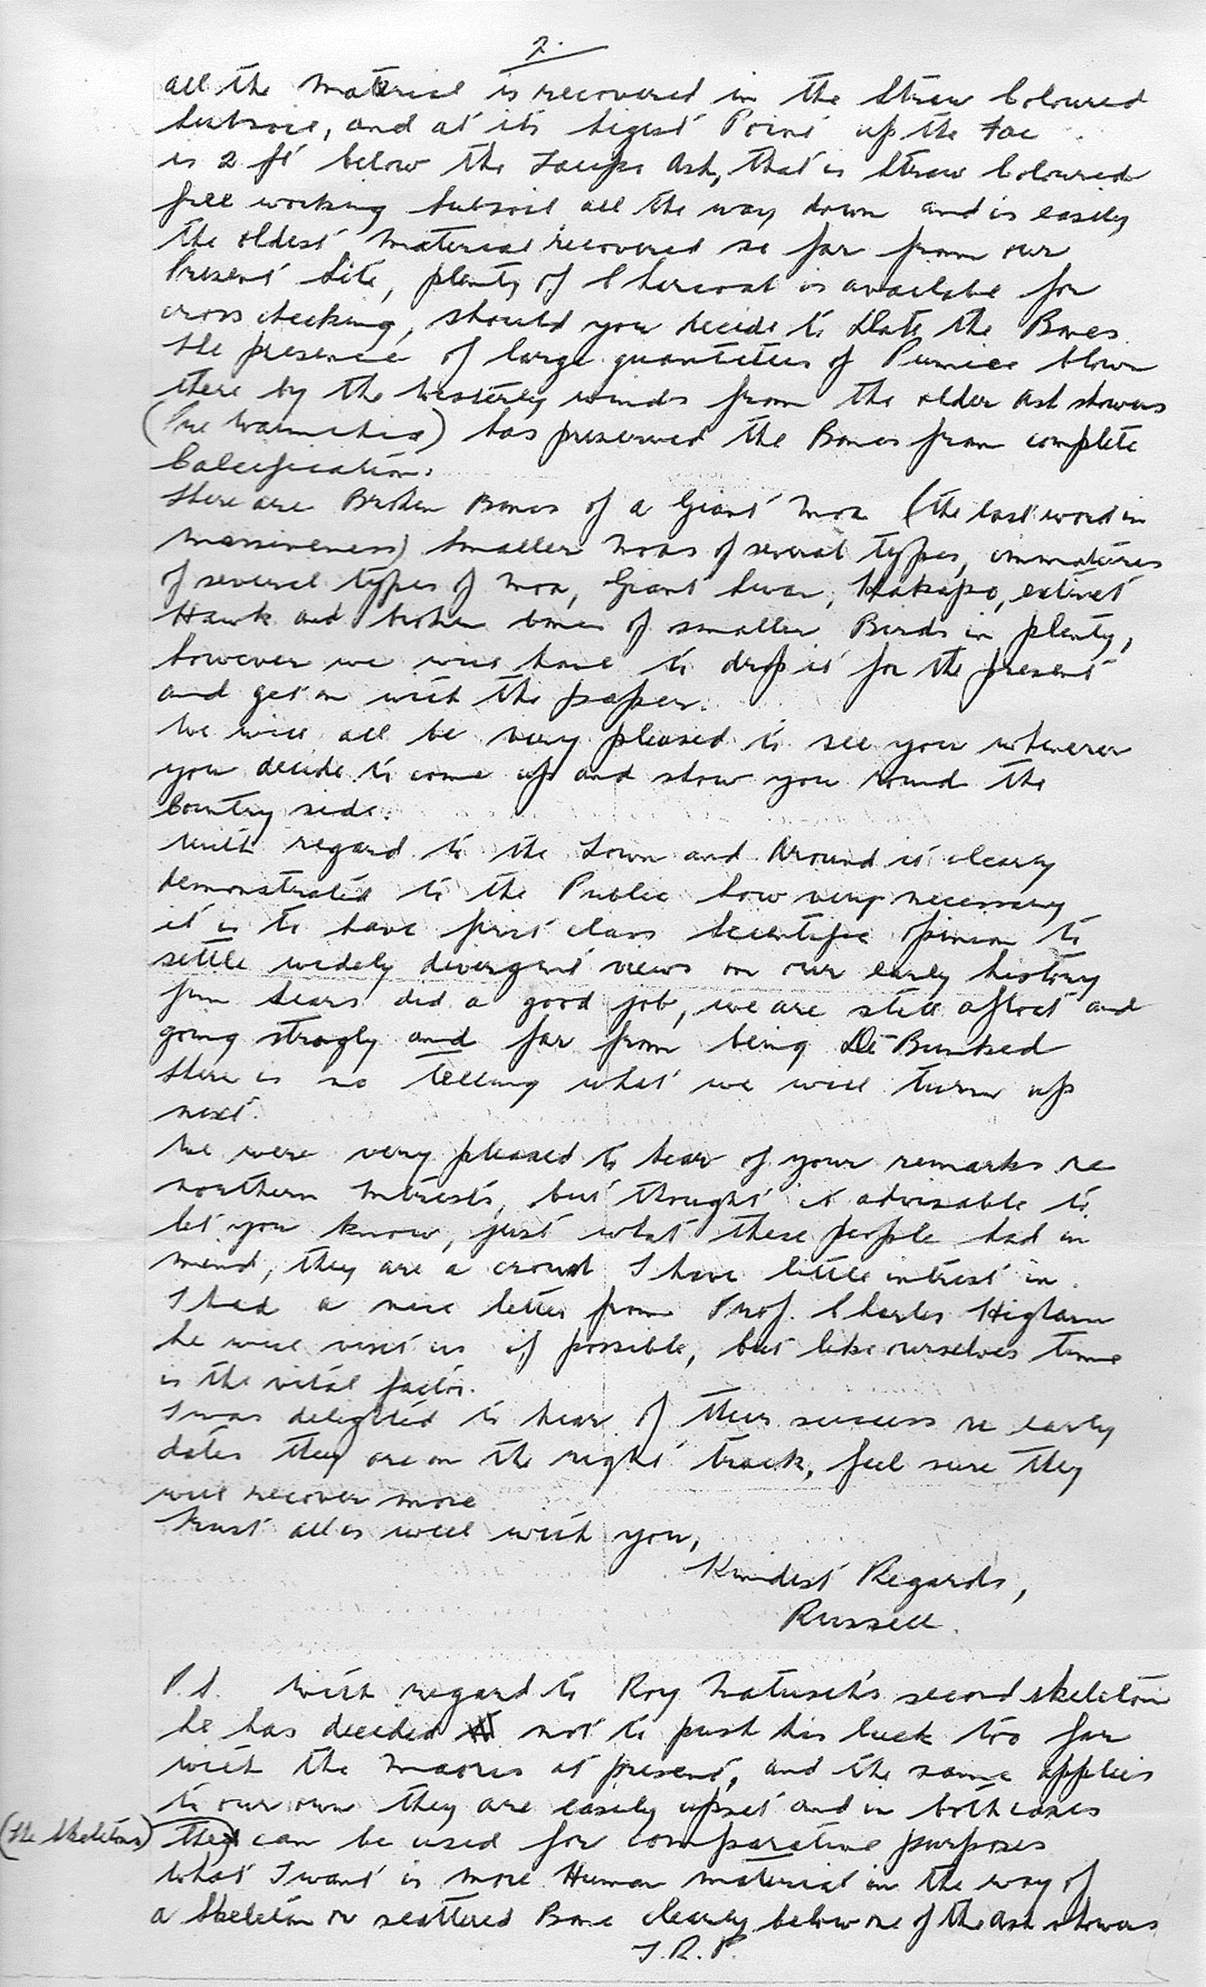 2.
all the material is recovered in the Straw Coloured
Subsoil, and at its higest Point up the Fac
is 2 ft below the Taupo Ash, that is Straw Coloured
free working subsoil all the way down and is easily
the oldest material recovered so far from our
Present Site, plenty of Charcoal is available for
cross checking, should you decide to Date the Bones.
the presence of large quantities of Pumice blown
there by the Westerly winds from the older Ash showers
(Pre Waimihia) has preserved the Bones from complete
Calcification.
there are Broken Bones of a Giant Moa (the last word in
massiveness) smaller Moas of several types, immatures
of several types of Moa, Giant Swan, Kakapo, extinct
Hawk and broken bones of smaller Birds in plenty,
however we will have to drop it for the present
and get on with the paper.
We will all be very pleased to see you whenever
you decide to come up and show you round the
Country side.
With regard to the Town and Around it clearly
demonstrated to the Public how very necessary
it is to have first class Scientific opinion to
settle widely divergent views on our early history
Jim Sears did a good job, we are still afloat and
going strogly and far from being De-Bunked
there is no telling what we will turn up
next.
We were very pleased to hear of your remarks re
northern Intrests, but thought it advisable to
let you know, just what these people had in
mind, they are a crowd I have little intrest in.
I had a nice letter from Prof. Charles Higham
he will visit us if possible, but like ourselves time
is the vital factor.
I was delighted to hear of their success re early
dates they are on the right track, feel sure they
will recover more
trust all is well with you,
Kindest Regards,
Russell.
P.S. With regard to Roy Matusch's second skeleton
he has decided not to push his luck too far
with the Maoris at present, and the same applies
to our own they are easily upset and in both cases
(the skeletons) they can be used for comparative purposes
What I want is more Human material in the way of
a Skeleton or scattered Bone clearly below one of the ash showers
T.R.P.